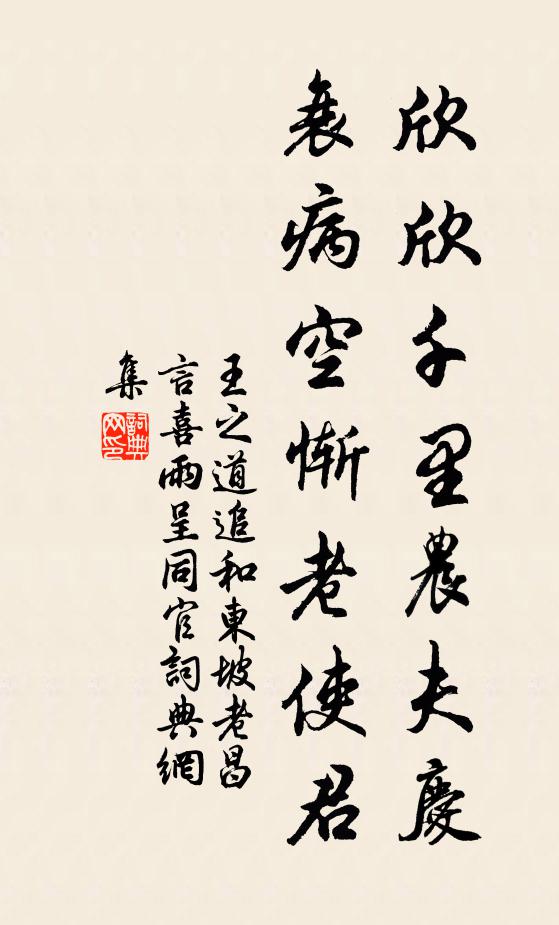 欣欣千里農夫慶
衰病空慚老使君
王之道追和東坡老昌
言喜雨呈同官詞典網
集
詞典网印